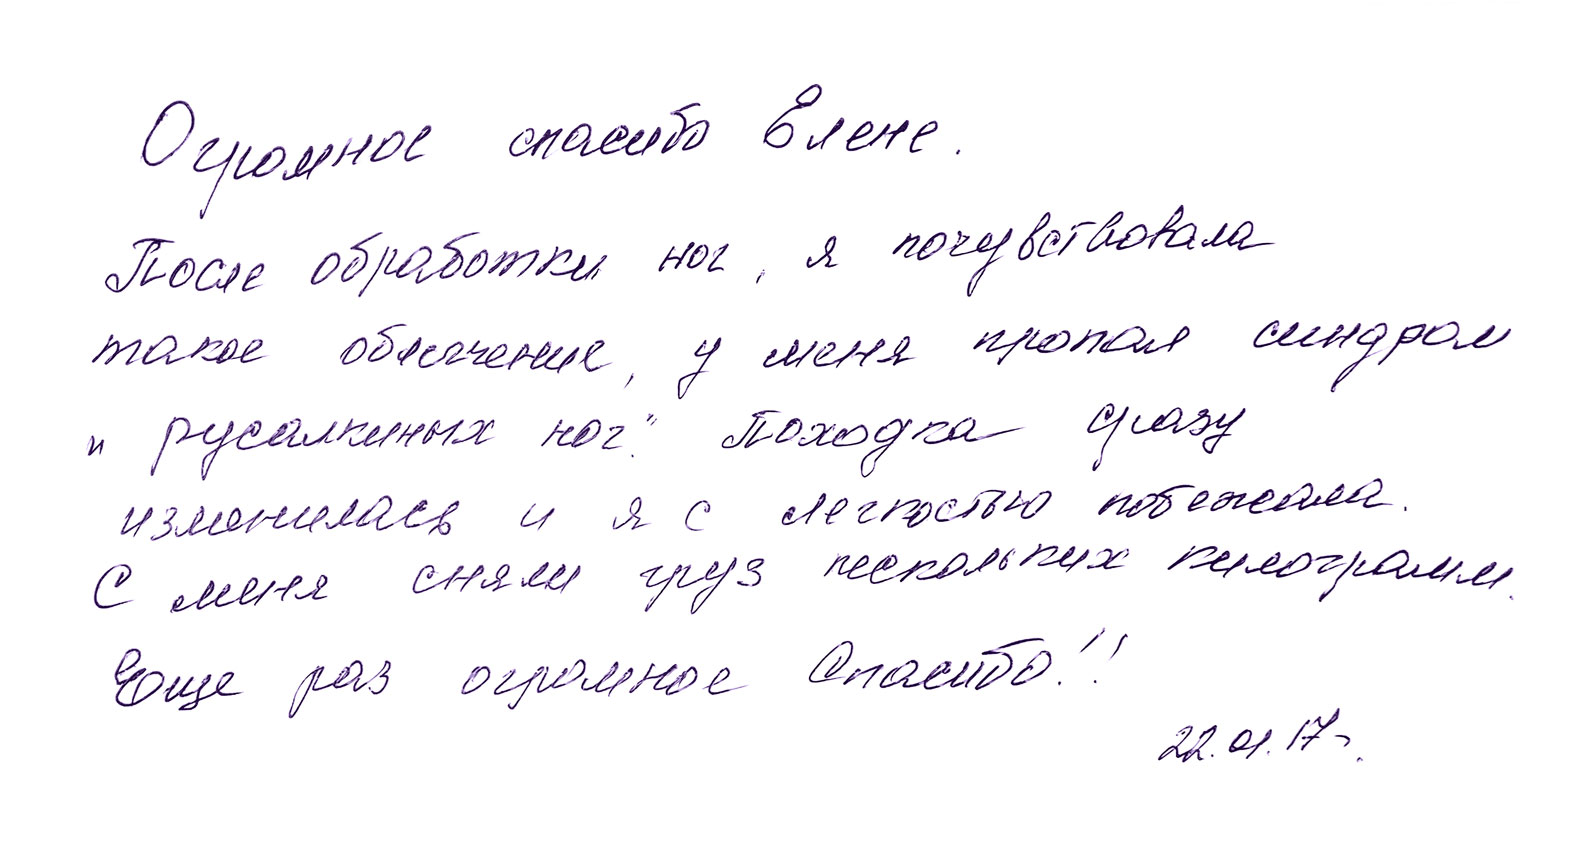 Огромное спасибо Елене.
После обработки ног, я почувствовала
такое облегчение, у меня пропал синдром
"русалкиных ног". Походка сразу
изменилась и я с легкостью побежала.
С меня сняли груз нескольких килограмм.
Еще раз огромное Спасибо!!
22.01.17г.